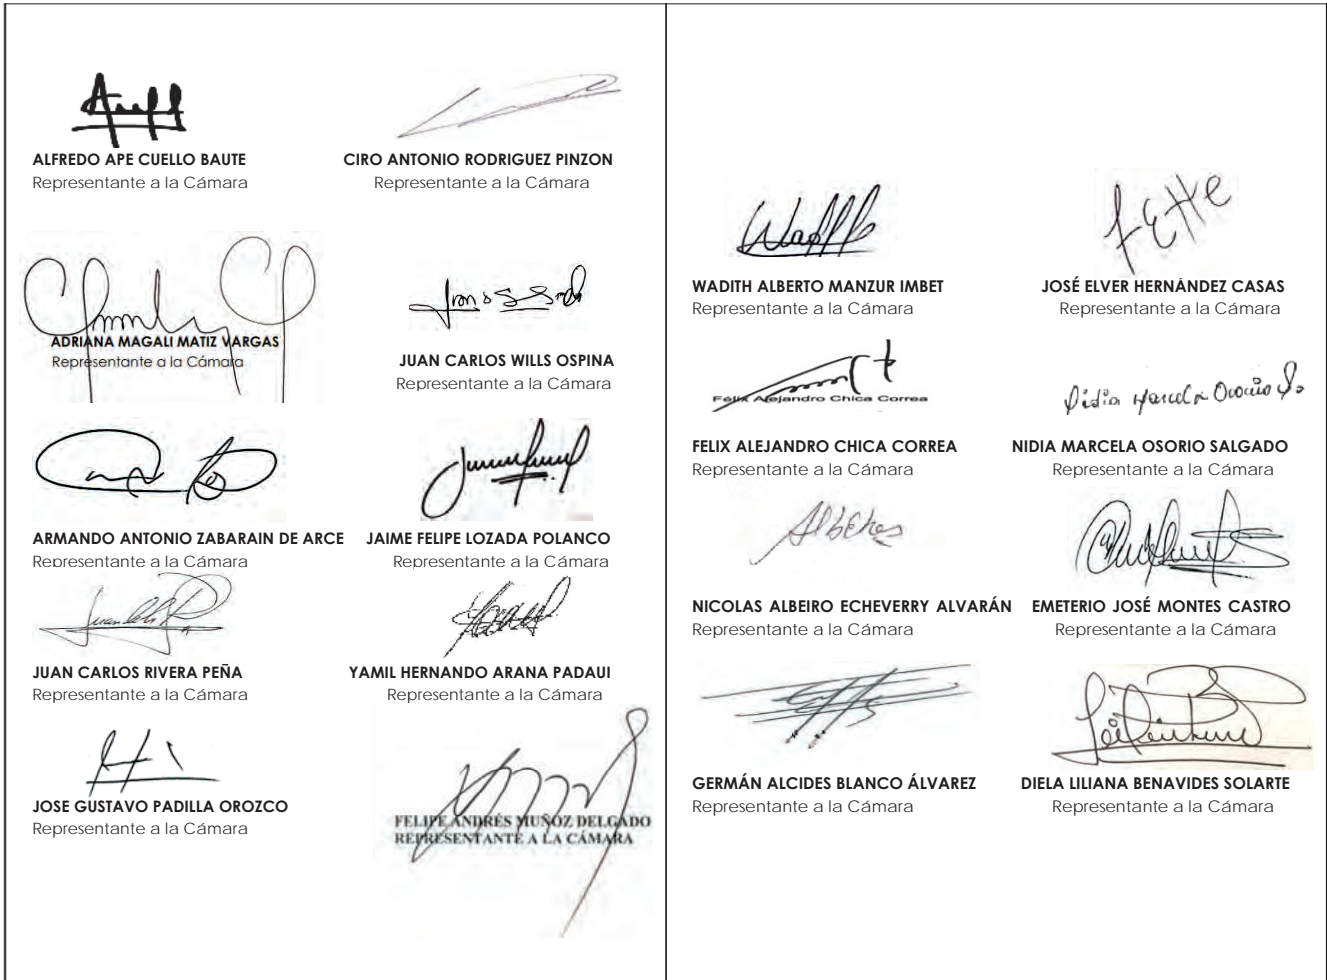 ALFREDO APE CUELLO BAUTE
Representante a la Cámara
CIRO ANTONIO RODRIGUEZ PINZON
Representante a la Cámara
ADRIANA MAGALI MATIZ VARGAS
Representante a la Cámara
JUAN CARLOS WILLS OSPINA
Representante a la Cámara
ARMANDO ANTONIO ZABARAIN DE ARCE
Representante a la Cámara
JAIME FELIPE LOZADA POLANCO
Representante a la Cámara
JUAN CARLOS RIVERA PEÑA
Representante a la Cámara
YAMIL HERNANDO ARANA PADAUI
Representante a la Cámara
JOSE GUSTAVO PADILLA OROZCO
Representante a la Cámara
FELIPE ANDRÉS MUÑOZ DELGADO
REPRESENTANTE A LA CÁMARA
WADITH ALBERTO MANZUR IMBET
Representante a la Cámara
JOSÉ ELVER HERNÁNDEZ CASAS
Representante a la Cámara
Félix Alejandro Chica Correa
FELIX ALEJANDRO CHICA CORREA
Representante a la Cámara
NIDIA MARCELA OSORIO SALGADO
Representante a la Cámara
NICOLAS ALBEIRO ECHEVERRY ALVARÁN
Representante a la Cámara
EMETERIO JOSÉ MONTES CASTRO
Representante a la Cámara
GERMÁN ALCIDES BLANCO ÁLVAREZ
Representante a la Cámara
DIELA LILIANA BENAVIDES SOLARTE
Representante a la Cámara